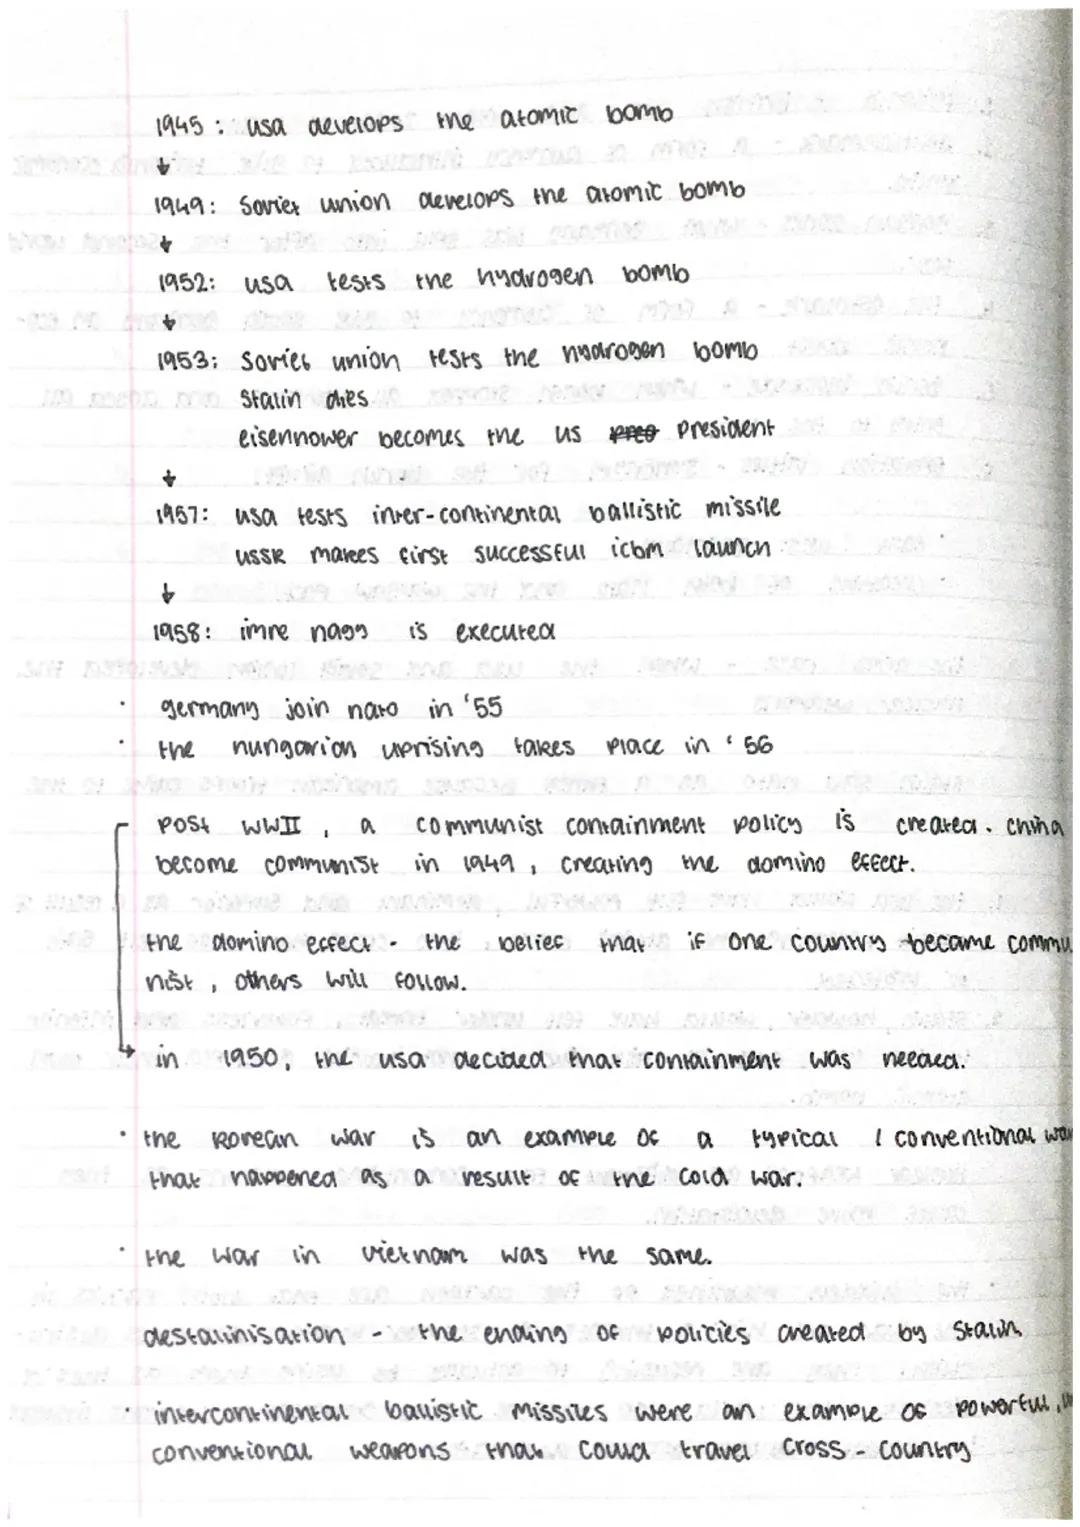 1945 : usa develops the atomic bomb
↓
1949: Soviet union develops the atomic bomb
↓
1952: usa tests the hydrogen bomb
↓
1953: Soviet union tests the hydrogen bomb
Stalin dies
eisenhower becomes the us pres president
↓
1957: usa tests inter-continental ballistic missile
ussr makes first successful icbm launch
↓
1958: imre nagy is executed
· germany join nato in '55
· the hungarian uprising takes place in '56
post WWII, a communist containment policy is created. china
become communist in 1949, creating the domino effect.
the domino effect - the belief that if one country became commu
nist, others will follow.
in 1950, the usa decided that containment was needed.
· the korean war is an example of a typical / conventional war
that happened as a result of the cold war.
· the war in vietnam was the same.
destalinisation - the ending of policies created by Stalin
· intercontinental ballistic missiles were an example of powerful,
conventional weapons that could travel cross-country